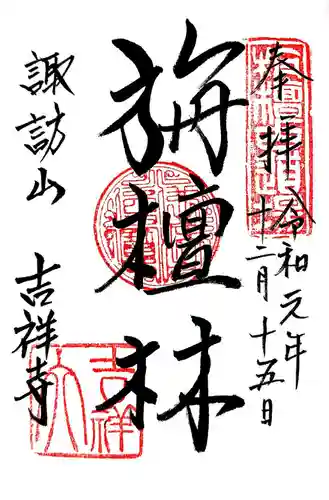 奉拝
令和元年
十二月十五日
旃檀林
諏訪山
吉祥寺